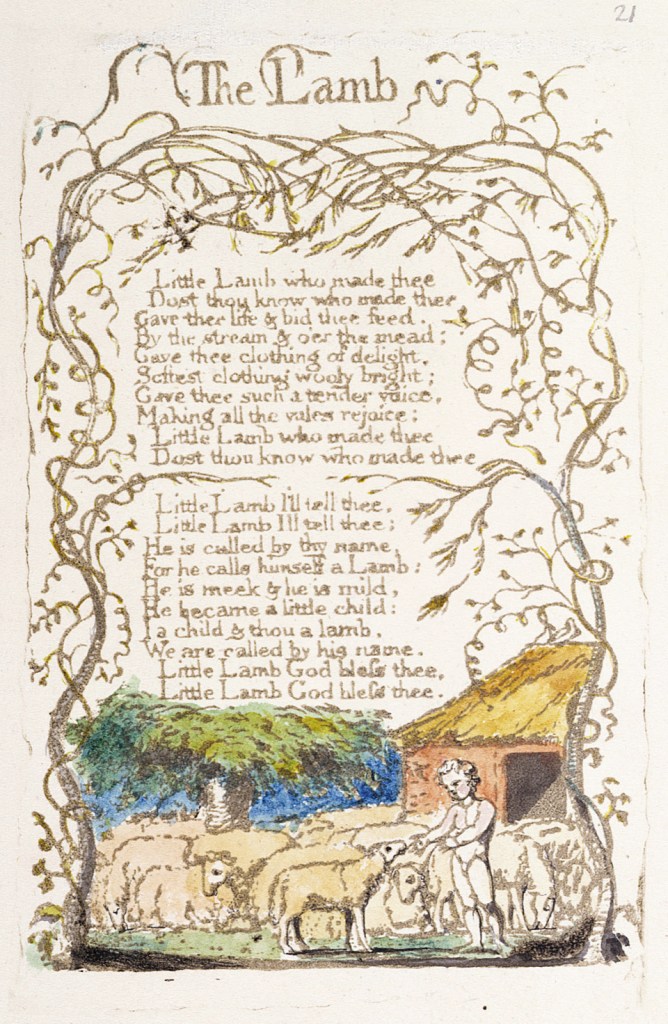 21
The Lamb
Little Lamb who made thee
Dost thou know who made thee
Gave thee life & bid thee feed.
By the stream & o'er the mead;
Gave thee clothing of delight,
Softest clothing wooly bright;
Gave thee such a tender voice,
Making all the vales rejoice:
Little Lamb who made thee
Dost thou know who made thee
Little Lamb I'll tell thee,
Little Lamb I'll tell thee;
He is called by thy name,
For he calls himself a Lamb:
He is meek & he is mild,
He became a little child:
I a child & thou a lamb,
We are called by his name.
Little Lamb God bless thee,
Little Lamb God bless thee.